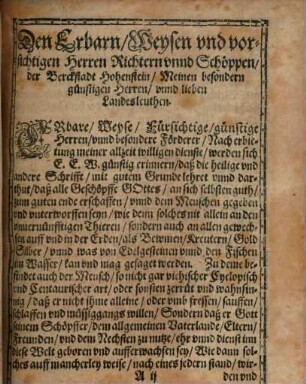 Den Erbarn/Weysen vnd vor-
sichtigen Herren Richtern vnnd Schöppen/
der Berckstadt Hohenstein/ Meinen besondern
günstigen Herren/ vnnd lieben
Landesleuthen.
ERbare/ Weyse/ Fürsichtige/günstige
Herren/vnnd besondere Förderer/ Nach erbie-
tung meiner allzeit willigen dienste/ werden sich
E. E. W. günstig erinnern/ daß die heilige vnd
andere Schrifft/ mit gutem Grunde lehret vnnd dar-
thut/ daß alle Geschöpffe GOttes/ an sich selbsten guth/
zum guten ende erschaffen/ vnnd dem Menschen gegeben
vnd vnterworffen seyn/ wie denn solches nit allein an den
vnuernünfftigen Thieren/ sondern auch an allen gewech-
sen auff vnd in der Erden/ als Bewmen/Kreutern/ Gold
Silber/ vnnd was von Edelgesteinen vnnd den Fischen
im Wasser/ kan vnd mag gesaget werden. Zu deme be-
findet auch der Mensch/ so nicht gar viehischer Cyclopisch
vnd Centaurischer art/ oder sonsten zerrüt vnd wahnsin-
nig/ daß er nicht jhme alleine/ oder vmb fressen/ sauffen/
schlaffen vnd müssiggangs willen/ Sondern daß er Gott
seinem Schöpffer/ dem allgemeinen Vaterlande/ Eltern/
Freunden/ vnd dem Nechsten zu nutz/ ehr vnnd dienst im
diese Welt geboren vnd aufferwachsen sey/ Wie dann sol-
ches auff mancherley weise/ nach eines jedern stand/ wir-
A ij den vnd